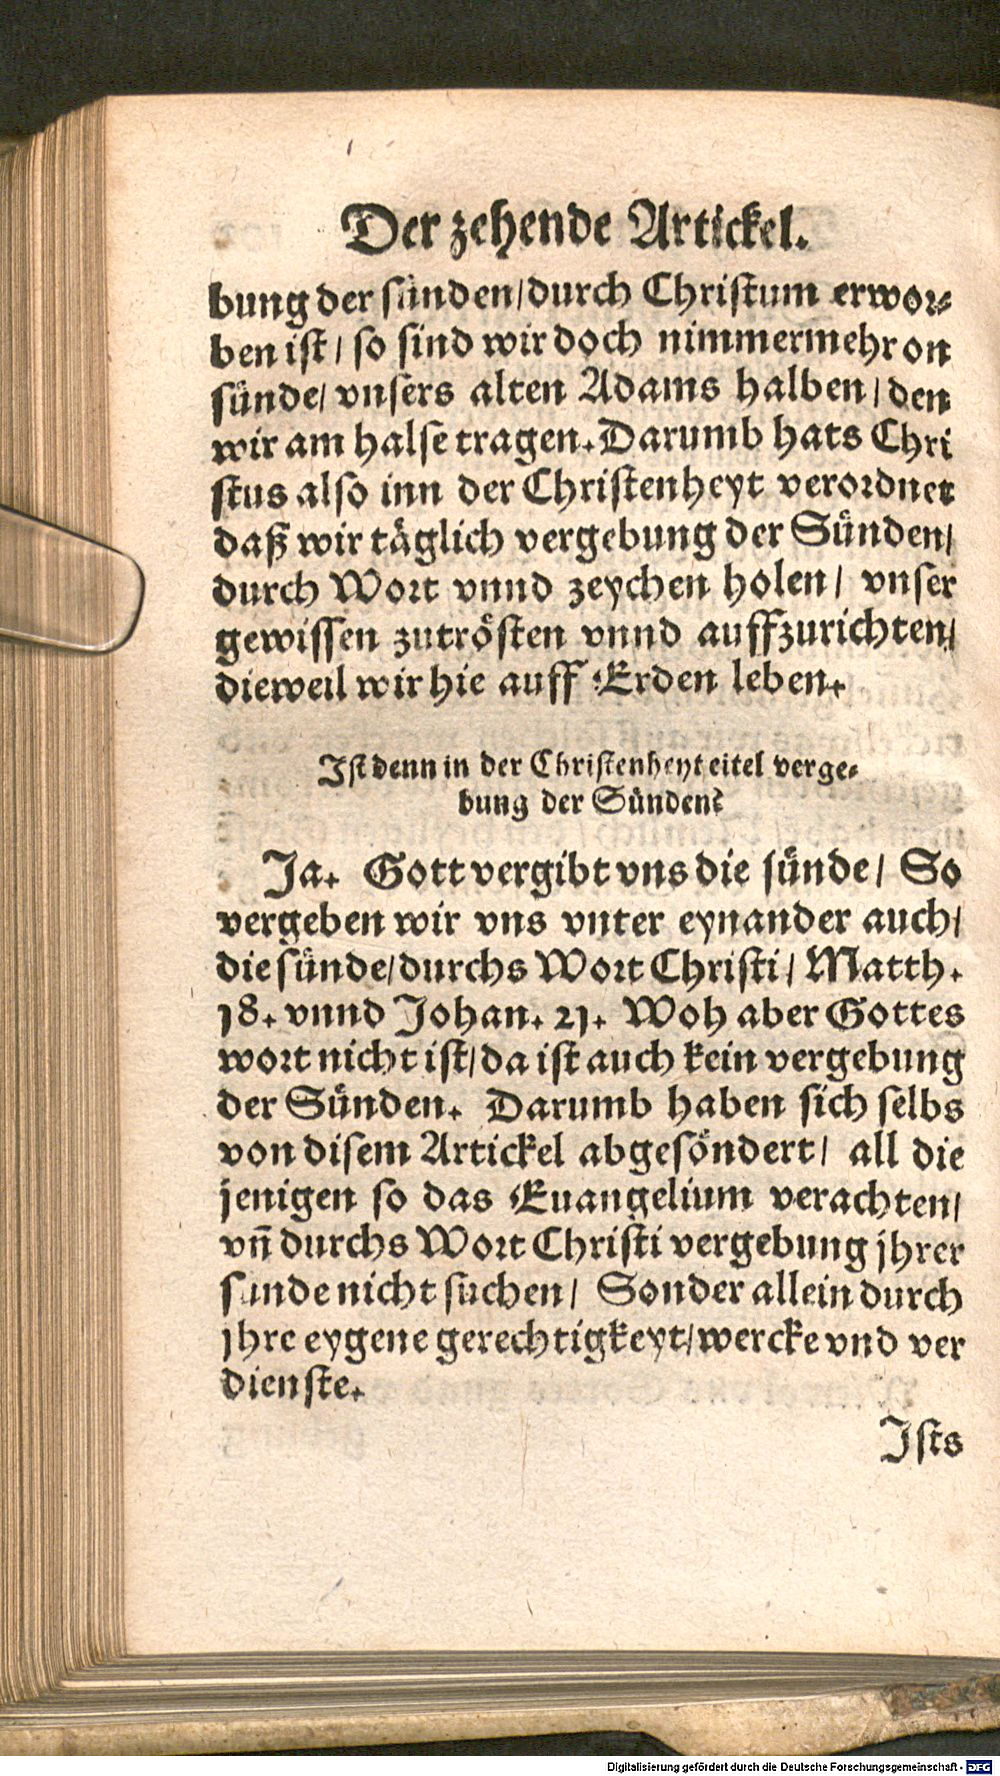 Der zehende Artickel.
bung der sünden/durch Christum erwor⸗
ben ist/ so sind wir doch nimmermehr on
sünde/ vnsers alten Adams halben/ den
wir am halse tragen. Darumb hats Chri
stus also inn der Christenheyt verordnet
daß wir täglich vergebung der Sünden/
durch Wort vnnd zeychen holen/ vnser
gewissen zutrösten vnnd auffzurichten/
dieweil wir hie auff Erden leben.
Ist denn in der Christenheyt eitel verge⸗
bung der Sünden?
Ja. Gott vergibt vns die sünde/ So
vergeben wir vns vnter eynander auch/
die sünde/durchs Wort Christi/ Matth.
18. vnnd Johan. 21. Woh aber Gottes
wort nicht ist/da ist auch kein vergebung
der Sünden. Darumb haben sich selbs
von disem Artickel abgesöndert/ all die
jenigen so das Euangelium verachten/
vñ durchs Wort Christi vergebung jhrer
sünde nicht suchen/ Sonder allein durch
jhre eygene gerechtigkeyt/wercke vnd ver
dienste.
Ists
Digitalisierung gefördert durch die Deutsche Forschungsgemeinschaft - DFG